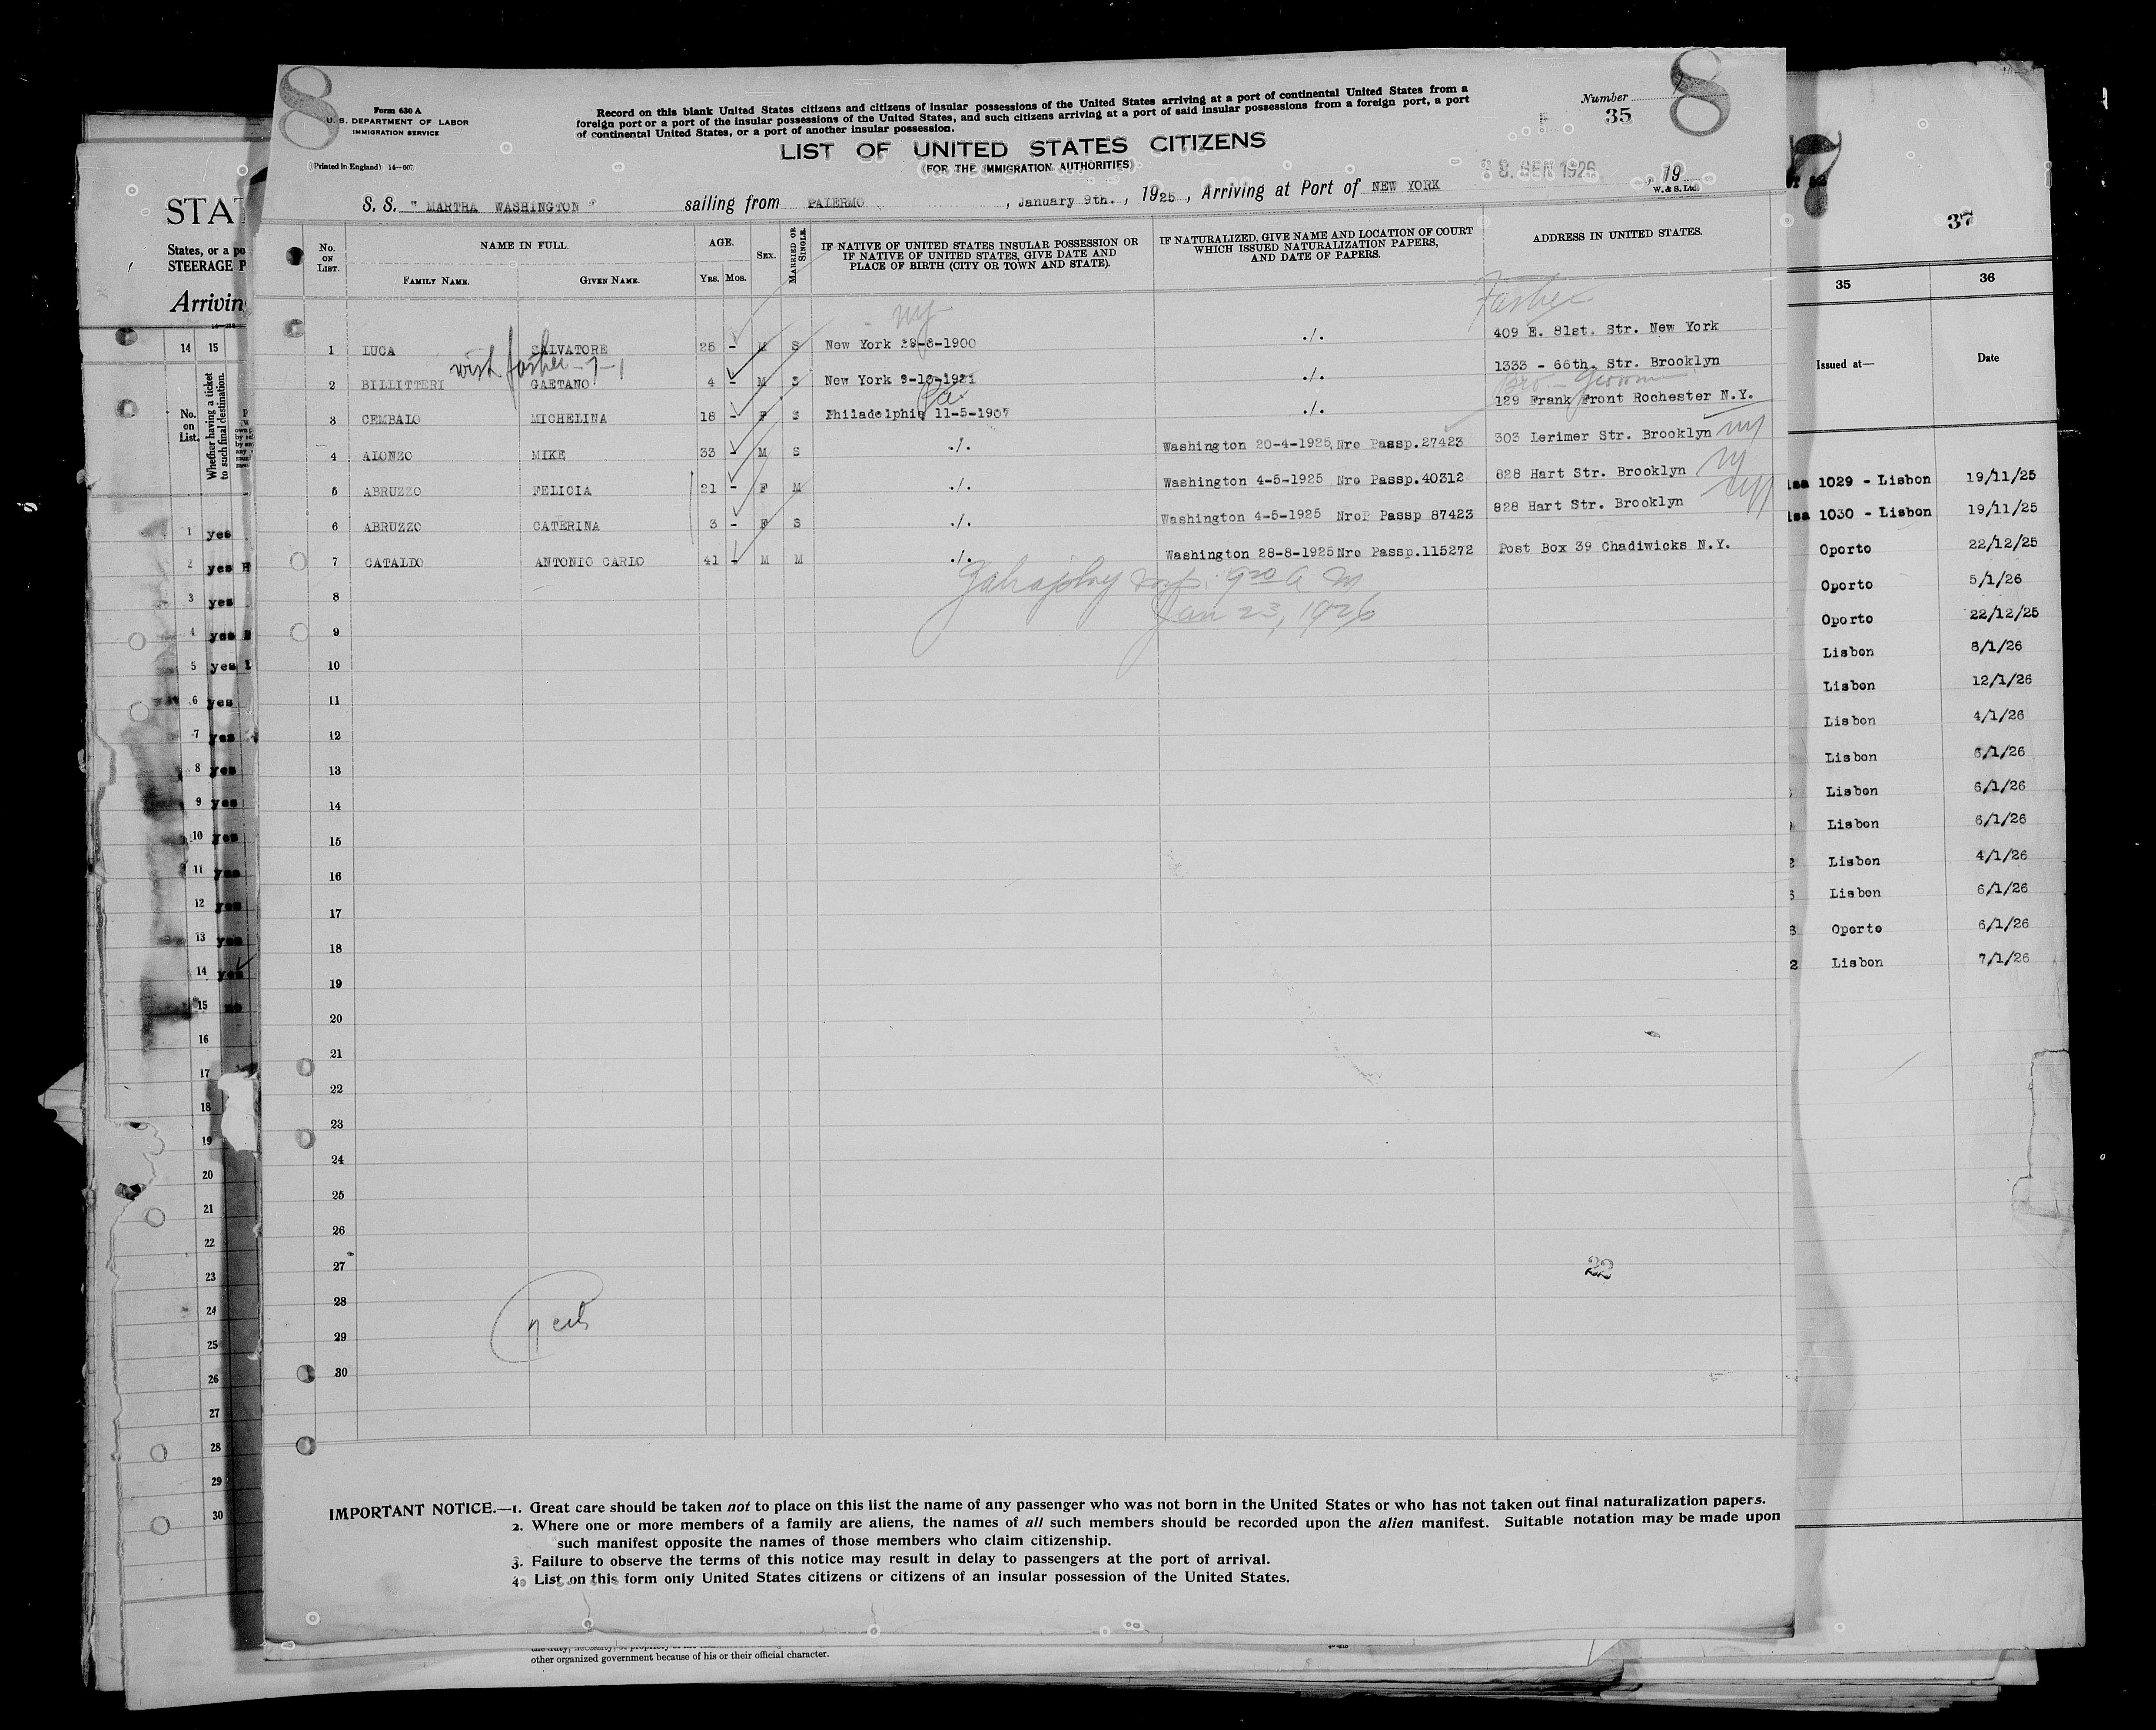 8
8
Form 630 A
U. S. DEPARTMENT OF LABOR
IMMIGRATION SERVICE
(Printed in England) 14—607
Record on this blank United States citizens and citizens of insular possessions of the United States arriving at a port of continental United States from a
foreign port or a port of the insular possessions of the United States, and such citizens arriving at a port of said insular possessions from a foreign port, a port
of continental United States, or a port of another insular possession.
Number
35
LIST OF UNITED STATES CITIZENS
(FOR THE IMMIGRATION AUTHORITIES)
GEN 1926 , 19
W. & S. Ltd.
S. S. " MARTHA WASHINGTON " sailing from PALERMO , January 9th. , 1925 , Arriving at Port of NEW YORK
No. ON LIST.
NAME IN FULL
FAMILY NAME. GIVEN NAME.
AGE.
YRS. MOS.
SEX.
MARRIED OR SINGLE.
IF NATIVE OF UNITED STATES INSULAR POSSESSION OR
IF NATIVE OF UNITED STATES, GIVE DATE AND
PLACE OF BIRTH (CITY OR TOWN AND STATE).
IF NATURALIZED, GIVE NAME AND LOCATION OF COURT
WHICH ISSUED NATURALIZATION PAPERS,
AND DATE OF PAPERS.
ADDRESS IN UNITED STATES.
NY
Father
1 LUCA SALVATORE 25 - M S New York 28-8-1900 ./. 409 E. 81st. Str. New York
with father
2 BILLITTERI GAETANO 4 - M S New York 9-10-1921 ./. 1333 - 66th. Str. Brooklyn
Pa
Bro.
3 CEMBALO MICHELINA 18 - F S Philadelphia 11-5-1907 ./. 129 Frank Front Rochester N.Y.
4 ALONZO MIKE 33 - M S ./. Washington 20-4-1925, Nro Passp.27423 303 Lerimer Str. Brooklyn NY
5 ABRUZZO FELICIA 21 - F M ./. Washington 4-5-1925 Nro Passp.40312 828 Hart Str. Brooklyn NY
6 ABRUZZO CATERINA 3 - F S ./. Washington 4-5-1925 NroP Passp 87423 828 Hart Str. Brooklyn NY
7 CATALDO ANTONIO CARLO 41 - M M ./. Washington 28-8-1925 Nro Passp.115272 Post Box 39 Chadiwicks N.Y.
Insp. 9 20 A M
Jan 23, 1926
8
9
10
11
12
13
14
15
16
17
18
19
20
21
22
23
24
25
26
27
22
28
29
30
IMPORTANT NOTICE.—1. Great care should be taken not to place on this list the name of any passenger who was not born in the United States or who has not taken out final naturalization papers.
2. Where one or more members of a family are aliens, the names of all such members should be recorded upon the alien manifest. Suitable notation may be made upon
such manifest opposite the names of those members who claim citizenship.
3. Failure to observe the terms of this notice may result in delay to passengers at the port of arrival.
4. List on this form only United States citizens or citizens of an insular possession of the United States.
other organized government because of his or their official character.
STAT
States, or a po
STEERAGE P
Arriving
14 15
No. on List.
Whether having a ticket to such final destination.
1 yes
2 yes
3 yes
4 yes
5 yes
6 yes
7 yes
8 yes
9 yes
10 yes
11 yes
12 yes
13 yes
14 yes
15 no
16
17
18
19
20
21
22
23
24
25
26
27
28
29
30
7
37
35 36
Issued at— Date
1029 - Lisbon 19/11/25
1030 - Lisbon 19/11/25
Oporto 22/12/25
Oporto 5/1/26
Oporto 22/12/25
Lisbon 8/1/26
Lisbon 12/1/26
Lisbon 4/1/26
Lisbon 6/1/26
Lisbon 6/1/26
Lisbon 6/1/26
2 Lisbon 4/1/26
Lisbon 6/1/26
3 Oporto 6/1/26
2 Lisbon 7/1/26